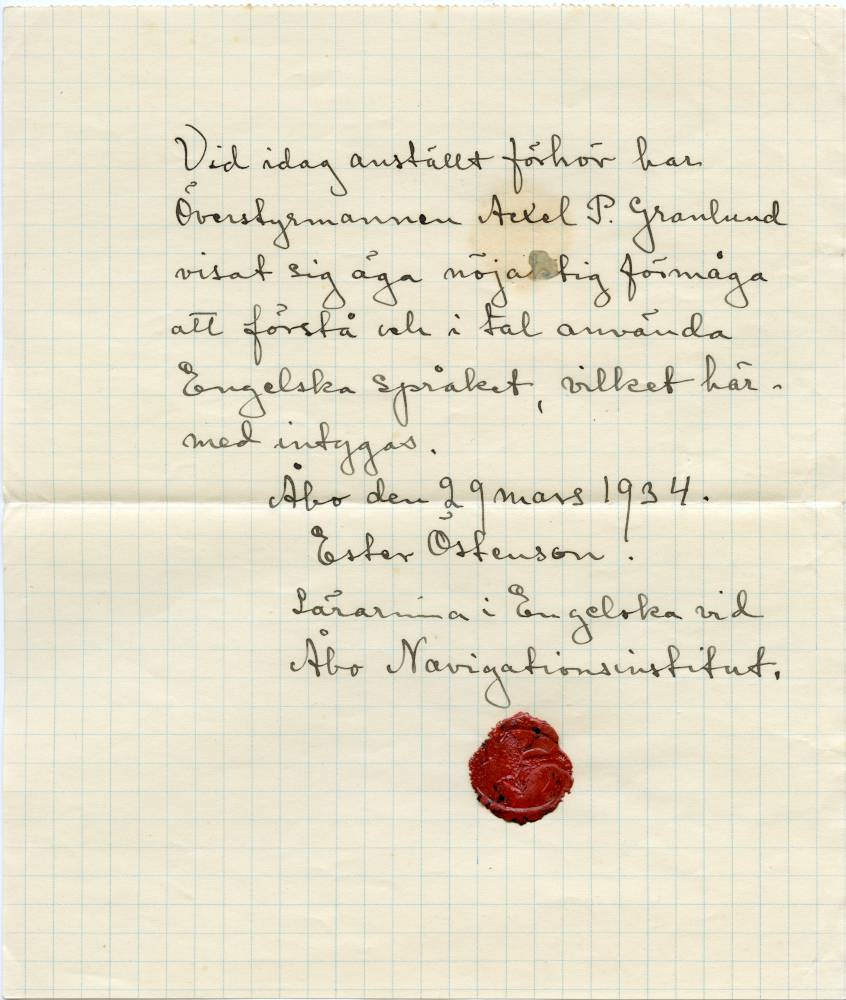 Vid idag anställt förhör har
Överstyrmannen Axel P. Granlund
visat sig äga nöjaktig förmåga
att förstå och i tal använda
Engelska språket, vilket här-
med intygas.
Åbo den 29 mars 1934.
Ester Östenson.
Lärarinna i Engelska vid
Åbo Navigationsinstitut.